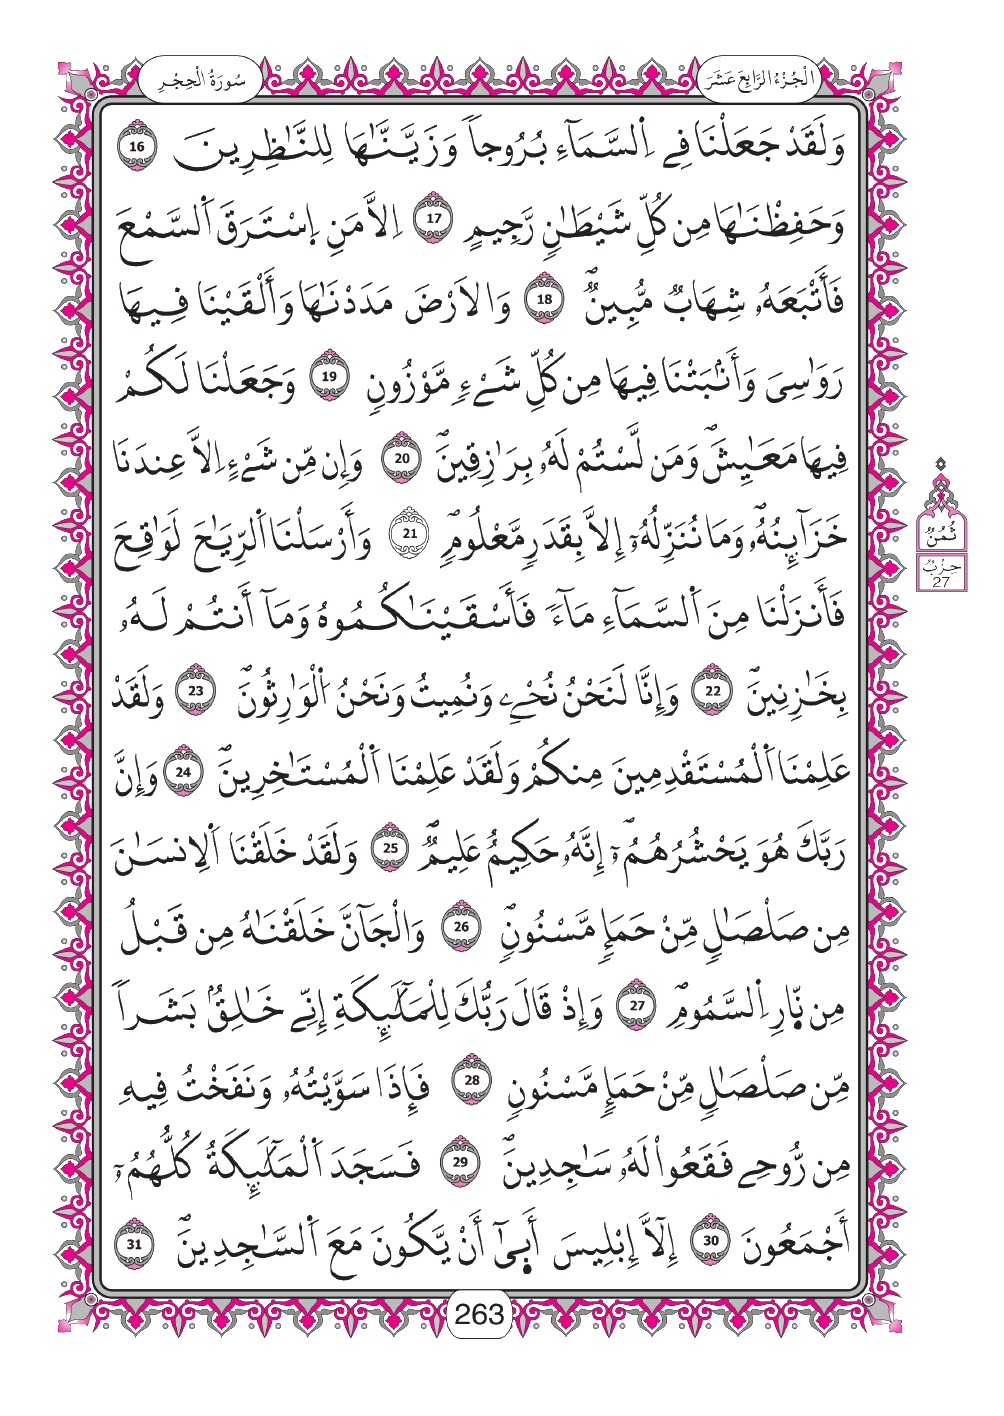 سُورَةُ الْحِجْرِ
الْجُزْءُ الرَّابِعَ عَشَرَ
وَلَقَدْ جَعَلْنَا فِے اِ۬لسَّمَآءِ بُرُوجاٗ وَزَيَّنَّٰهَا لِلنَّٰظِرِينَ 16
وَحَفِظْنَٰهَا مِن كُلِّ شَيْطَٰنٖ رَّجِيمٍ 17 اِلَّا مَنِ اِ۪سْتَرَقَ اَ۬لسَّمْعَ
فَأَتْبَعَهُۥ شِهَابٞ مُّبِينٞۖ 18 وَالَارْضَ مَدَدْنَٰهَا وَأَلْقَيْنَا فِيهَا
رَوَٰسِىَ وَأَنۢبَتْنَا فِيهَا مِن كُلِّ شَےْءٖ مَّوْزُونٖ 19 وَجَعَلْنَا لَكُمْ
فِيهَا مَعَٰيِشَۖ وَمَن لَّسْتُمْ لَهُۥ بِرَٰزِقِينَۖ 20 وَإِن مِّن شَےْءٍ اِلَّا عِندَنَا
خَزَآئِنُهُۥۖ وَمَا نُنَزِّلُهُۥٓ إِلَّا بِقَدَرٖ مَّعْلُومٖۖ 21 وَأَرْسَلْنَا اَ۬لرِّيَٰحَ لَوَٰقِحَ
فَأَنزَلْنَا مِنَ اَ۬لسَّمَآءِ مَآءٗ فَأَسْقَيْنَٰكُمُوهُ وَمَآ أَنتُمْ لَهُۥ
بِخَٰزِنِينَۖ 22 وَإِنَّا لَنَحْنُ نُحْےِ وَنُمِيتُ وَنَحْنُ اُ۬لْوَٰرِثُونَۖ 23 وَلَقَدْ
عَلِمْنَا اَ۬لْمُسْتَقْدِمِينَ مِنكُمْ وَلَقَدْ عَلِمْنَا اَ۬لْمُسْتَٰخِرِينَۖ 24 وَإِنَّ
رَبَّكَ هُوَ يَحْشُرُهُمُۥٓۖ إِنَّهُۥ حَكِيمٌ عَلِيمٞۖ 25 وَلَقَدْ خَلَقْنَا اَ۬لِانسَٰنَ
مِن صَلْصَٰلٖ مِّنْ حَمَإٖ مَّسْنُونٖۖ 26 وَالْجَآنَّ خَلَقْنَٰهُ مِن قَبْلُ
مِن نّ۪ارِ اِ۬لسَّمُومِۖ 27 وَإِذْ قَالَ رَبُّكَ لِلْمَلَٰٓئِكَةِ إِنِّے خَٰلِقُۢ بَشَراٗ
مِّن صَلْصَٰلٖ مِّنْ حَمَإٖ مَّسْنُونٖ 28 فَإِذَا سَوَّيْتُهُۥ وَنَفَخْتُ فِيهِ
مِن رُّوحِے فَقَعُواْ لَهُۥ سَٰجِدِينَۖ 29 فَسَجَدَ اَ۬لْمَلَٰٓئِكَةُ كُلُّهُمُۥٓ
أَجْمَعُونَ 30 إِلَّآ إِبْلِيسَ أَب۪ىٰٓ أَنْ يَّكُونَ مَعَ اَ۬لسَّٰجِدِينَۖ 31
ثُمُنُ
حِزْبُ
27
263